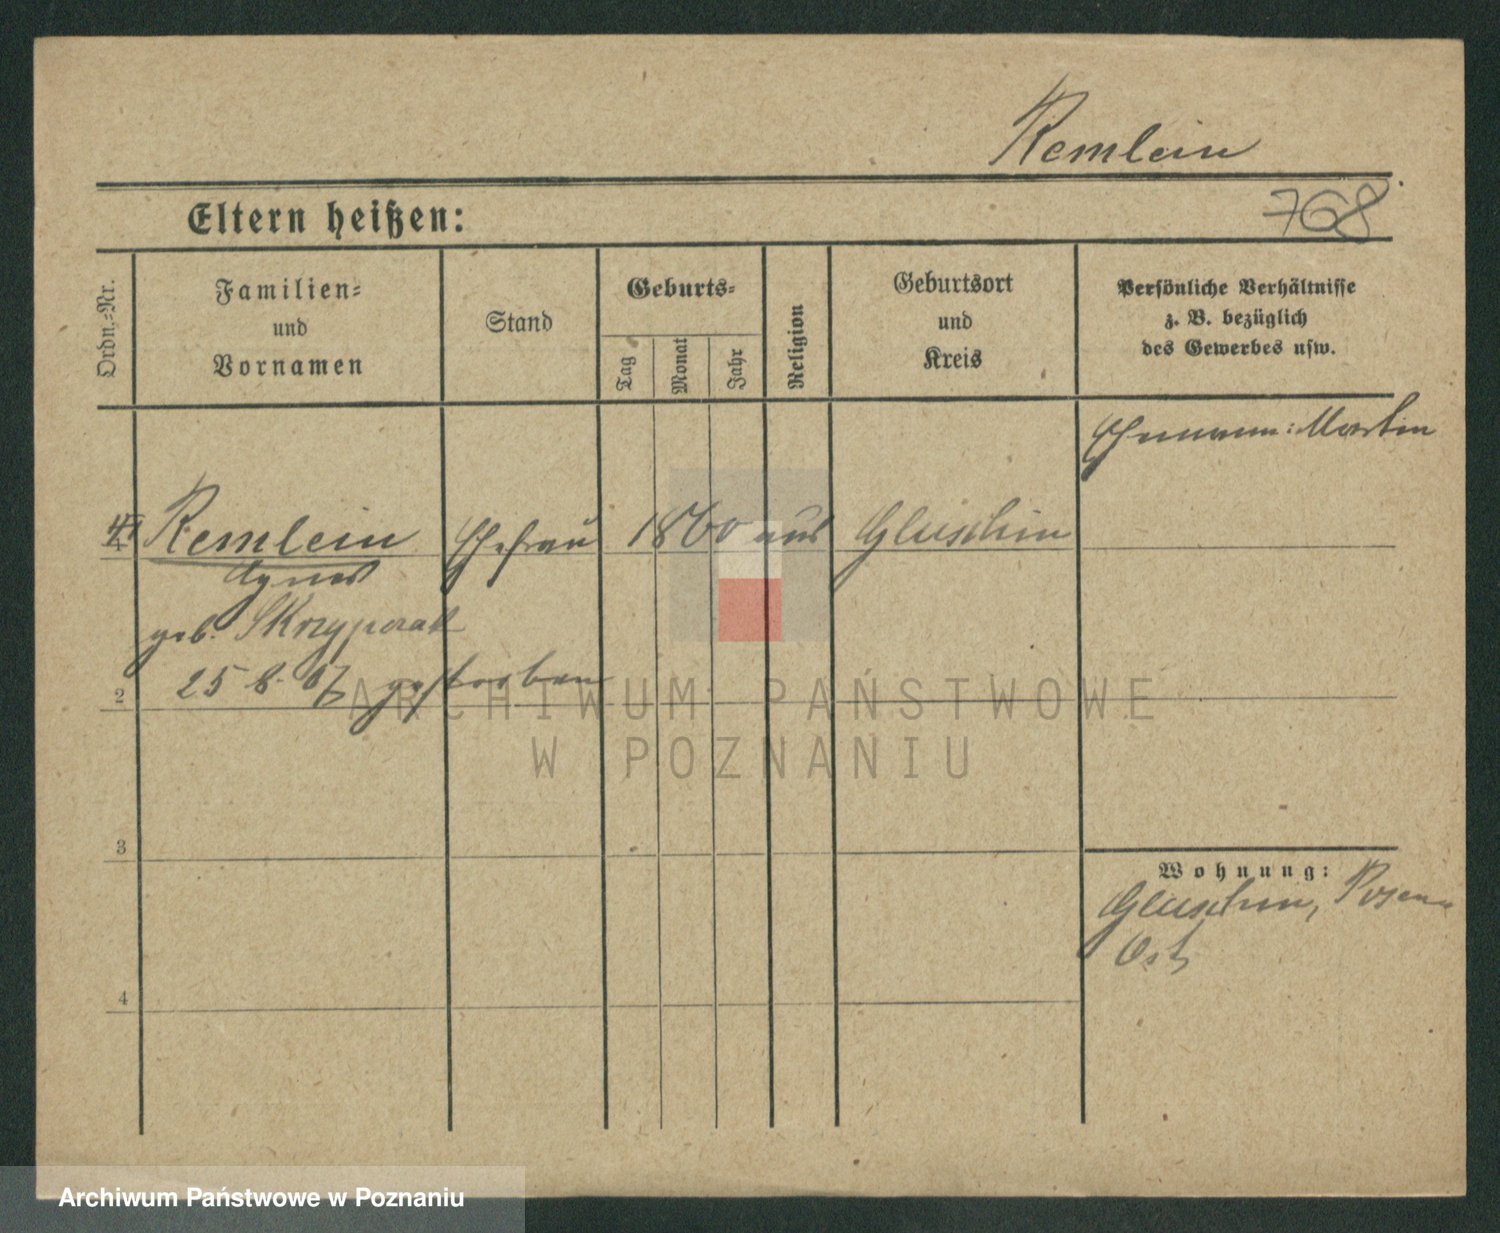 Remlein
768
Eltern heißen:
Ordn.-Nr.
Familien-
und
Vornamen
Stand
Geburts-
Tag
Monat
Jahr
Religion
Geburtsort
und
Kreis
Persönliche Verhältnisse
z. B. bezüglich
des Gewerbes usw.
Ehemann: Martin
Remlein Ehefrau 1860 aus Gluschin
Agnes
geb. Skrzypczak
25 8. 07 gestorben
2
3
4
Wohnung:
Gluschin, Posen-
Ost
ARCHIWUM PAŃSTWOWE
W POZNANIU
Archiwum Państwowe w Poznaniu